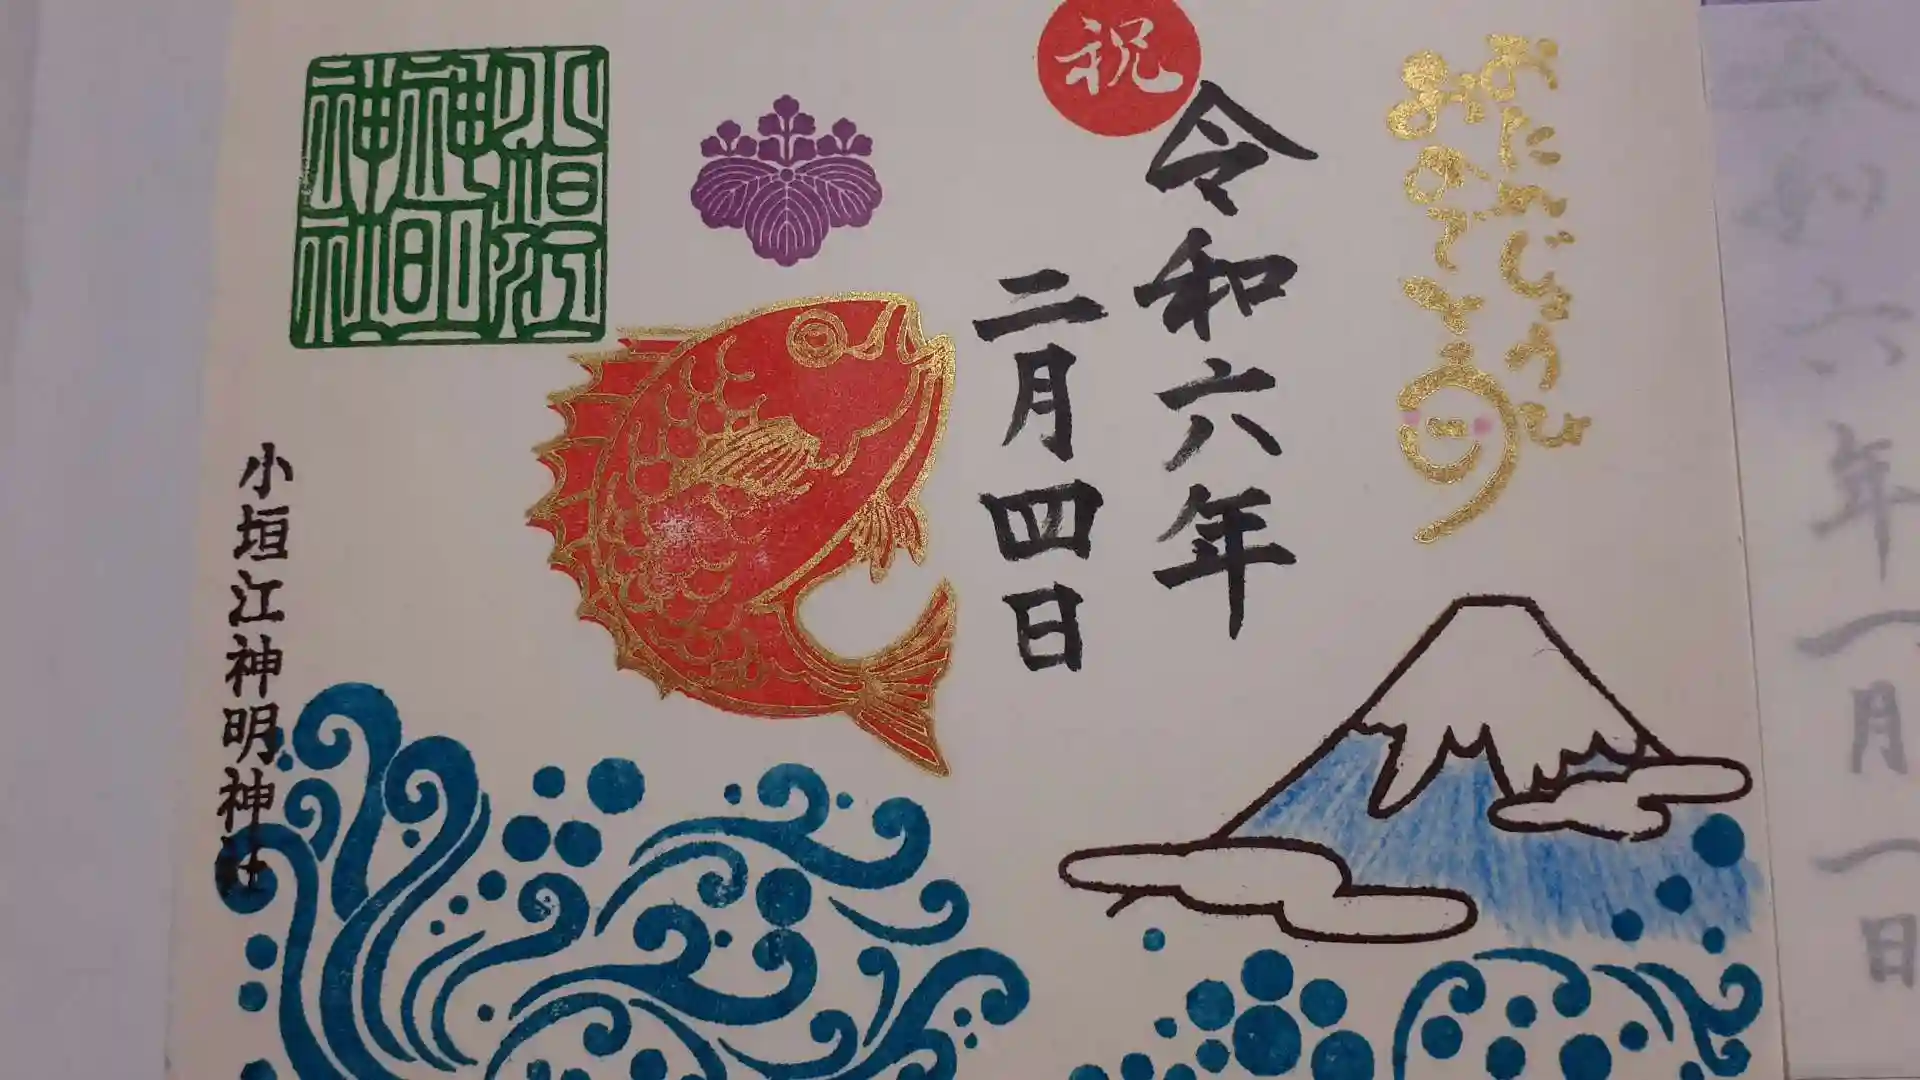 おたんじょうび
おめでとう
祝
令和六年
二月四日
小垣江
神明
神社
小垣江神明神社
令和六年一月一日